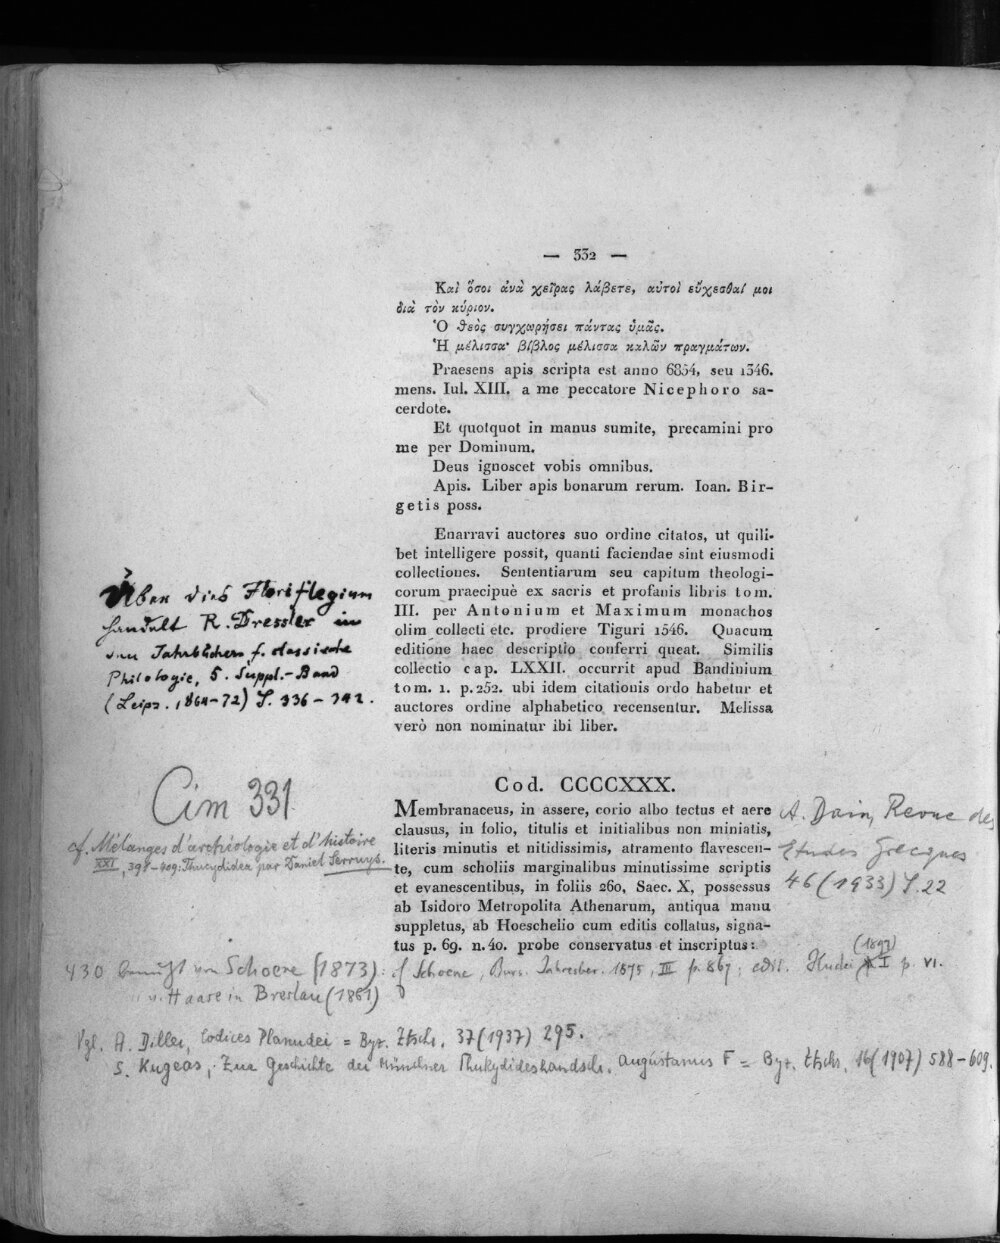 — 332 —
Καὶ ὅσοι ἀνὰ χεῖρας λάβετε, αὐτοὶ εὔχεσθαί μοι
διὰ τὸν κύριον.
Ὁ θεὸς συγχωρήσει πάντας ὑμᾶς.
Ἡ μέλισσα· βίβλος μέλισσα καλῶν πραγμάτων.
Praesens apis scripta est anno 6854, seu 1346.
mens. Iul. XIII. a me peccatore Nicephoro sa-
cerdote.
Et quotquot in manus sumite, precamini pro
me per Dominum.
Deus ignoscet vobis omnibus.
Apis. Liber apis bonarum rerum. Ioan. Bir-
getis poss.
Enarravi auctores suo ordine citatos, ut quili-
bet intelligere possit, quanti faciendae sint eiusmodi
collectiones. Sententiarum seu capitum theologi-
corum praecipuè ex sacris et profanis libris tom.
III. per Antonium et Maximum monachos
olim collecti etc. prodiere Tiguri 1546. Quacum
editione haec descriptio conferri queat. Similis
collectio cap. LXXII. occurrit apud Bandinium
tom. 1. p. 252. ubi idem citationis ordo habetur et
auctores ordine alphabetico recensentur. Melissa
verò non nominatur ibi liber.
Über dies Floriflegium
handelt R. Dressler in
den Jahrbüchern f. classische
Philologie, 5. Suppl.-Band
(Leipz. 1864-72) S. 336-342.
Cod. CCCCXXX.
Membranaceus, in assere, corio albo tectus et aere
clausus, in folio, titulis et initialibus non miniatis,
literis minutis et nitidissimis, atramento flavescen-
te, cum scholiis marginalibus minutissime scriptis
et evanescentibus, in foliis 260, Saec. X, possessus
ab Isidoro Metropolita Athenarum, antiqua manu
suppletus, ab Hoeschelio cum editis collatus, signa-
tus p. 69. n. 40. probe conservatus et inscriptus:
Cim 331
cf. Mélanges d'archéologie et d'histoire
XXI, 391-409: Thucydidea par Daniel Serruys.
A. Dain, Revue des
Etudes Grecques
46 (1933) S. 22
430 benützt von Schoene (1873): cf Schoene, Burs. Jahresber. 1875, III p. 867; edit. Hudei (1897) I p. VI.
" v. Haase in Breslau (1861)
Vgl. A. Diller, Codices Planudei = Byz. Ztschr. 37 (1937) 295.
S. Kugeas, Zur Geschichte der Münchner Thukydideshandschr. Augustanus F = Byz. Ztschr. 16 (1907) 588-609.